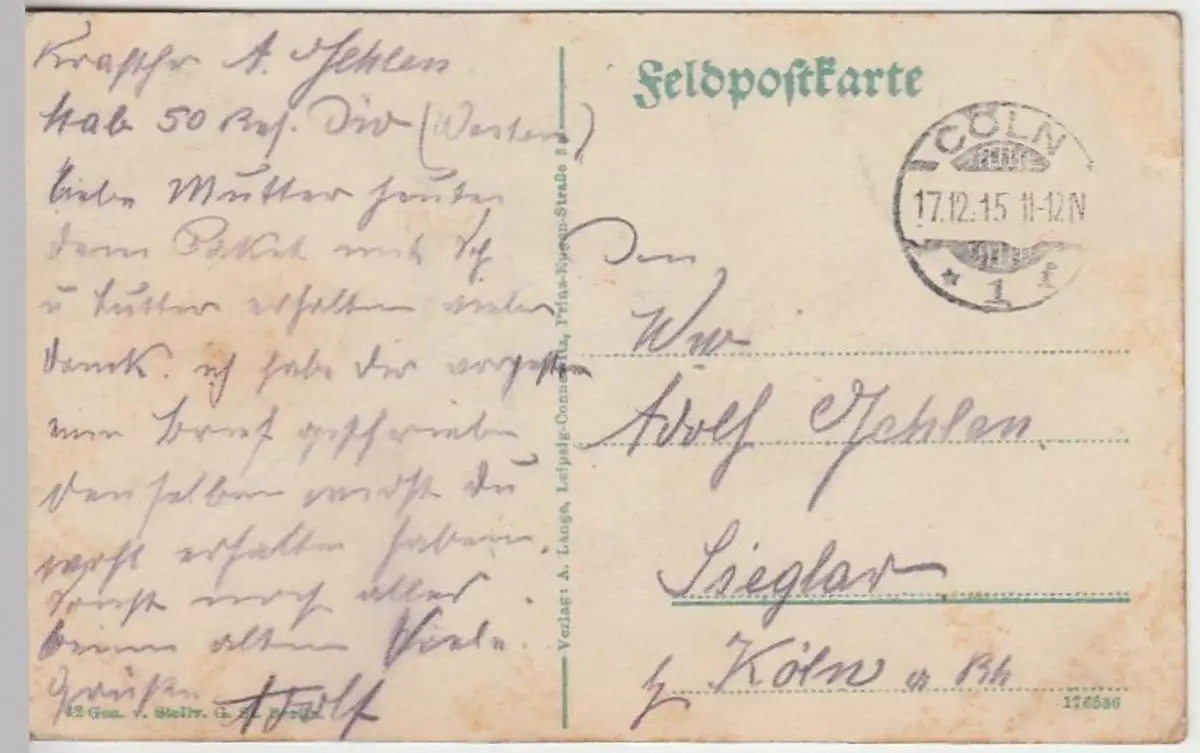 Kraftfhr A. Jehlen
Stab 50 Res. Div (Westen)
Liebe Mutter heute
dem Paket mit Sch
u Butter erhalten vielen
Danck. ich habe dir vorgestern
einen Brief geschrieben
denselben wirst Du
wohl erhalten haben.
Sonst noch alles
beim alten Viele
Grüße Adolf
42 Gen. v. Stellv. G. St. Berlin.
Verlag: A. Lange, Leipzig-Connewitz, Prinz-Eugen-Straße
Feldpostkarte
CÖLN
17.12.15 11-12 N
* 1
Ww
Adolf Jehlen.
Sieglar
b/ Köln a Rh
176536